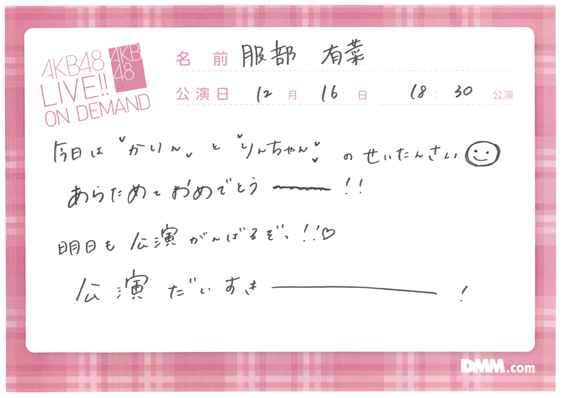 AKB48
LIVE!!
ON DEMAND
AKB
48
名前 服部 有菜
公演日 12月 16日 18:30 公演
今日は "かりん" と "りんちゃん" のせいたんさい
あらためておめでとうーー!!
明日も 公演がんばるぞっ!!♡
公演 だいすきーーー!
DMM.com